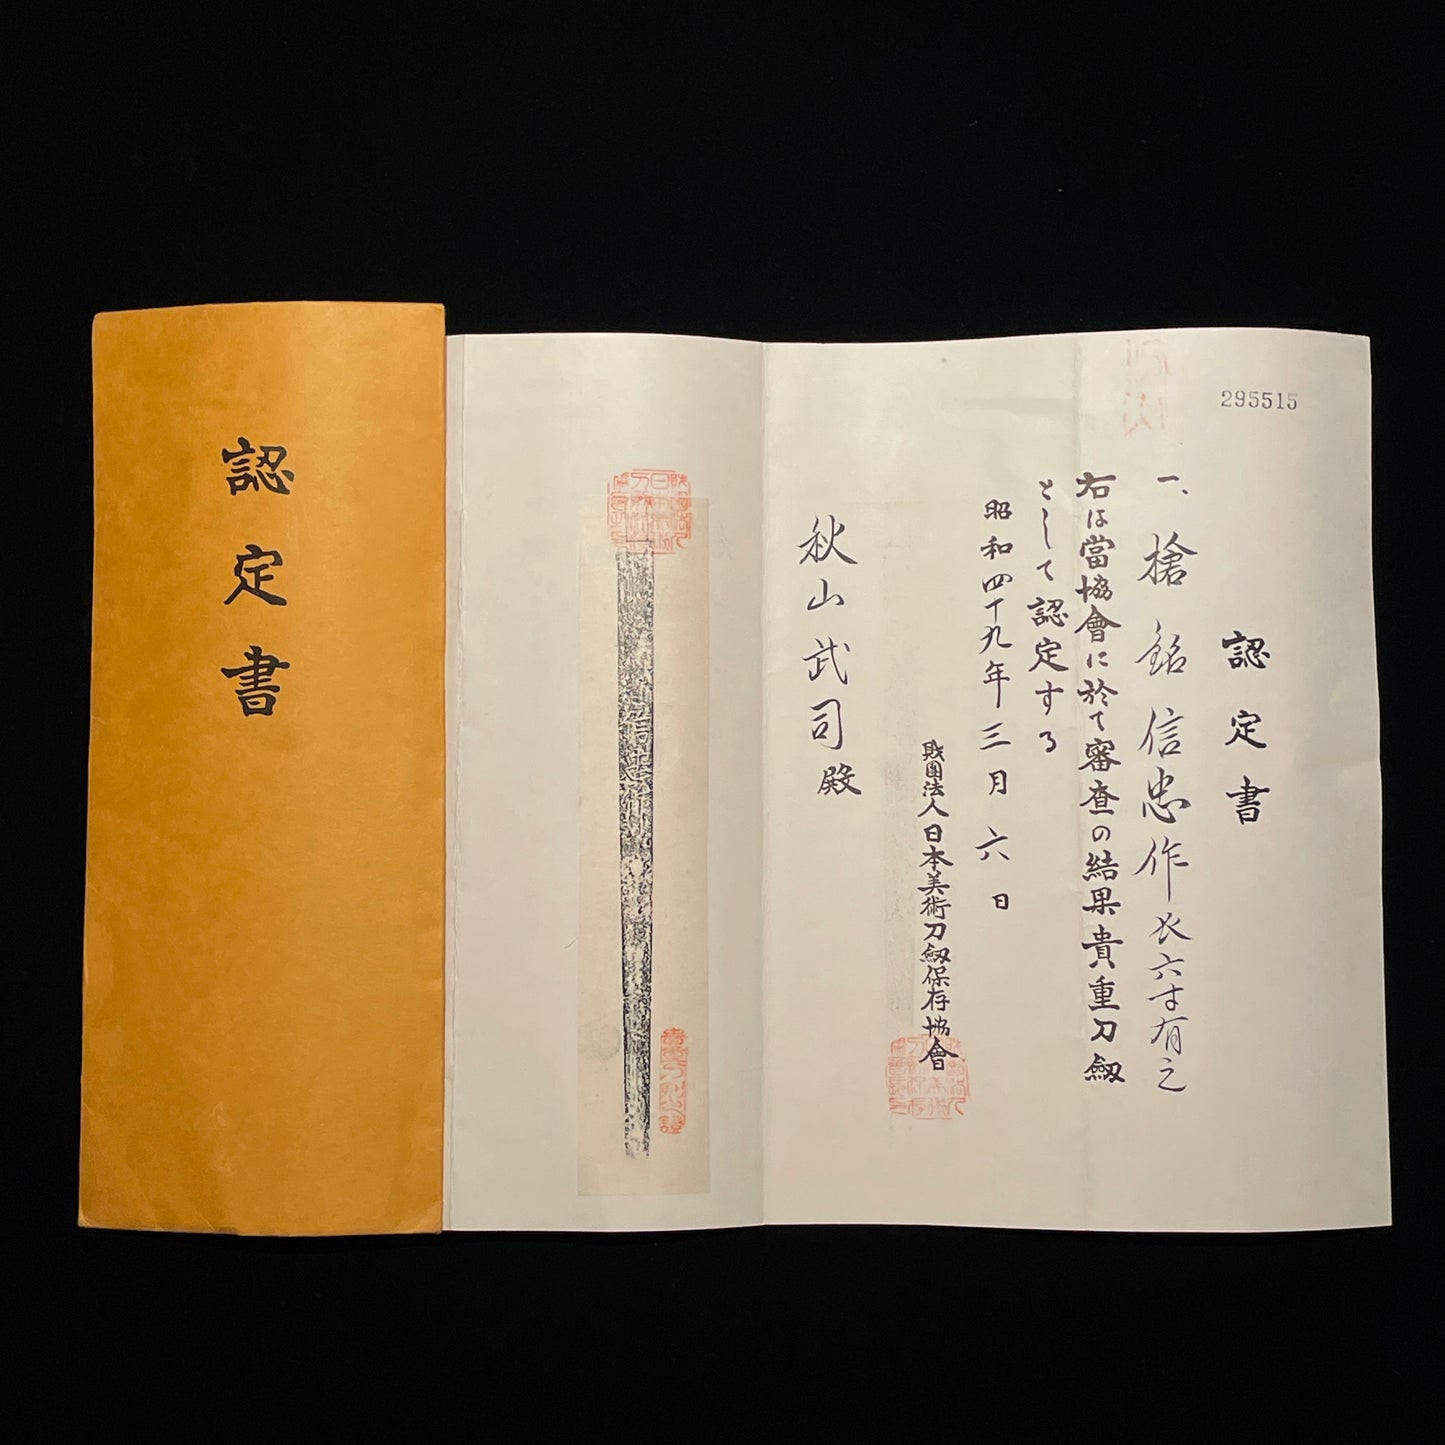 認定書
295515
認定書
一、槍 銘 信忠作 長六寸有之
右は當協會に於て審査の結果貴重刀劔
として認定する
昭和四十九年三月六日
財團法人日本美術刀劔保存協會
秋山武司殿
信忠作